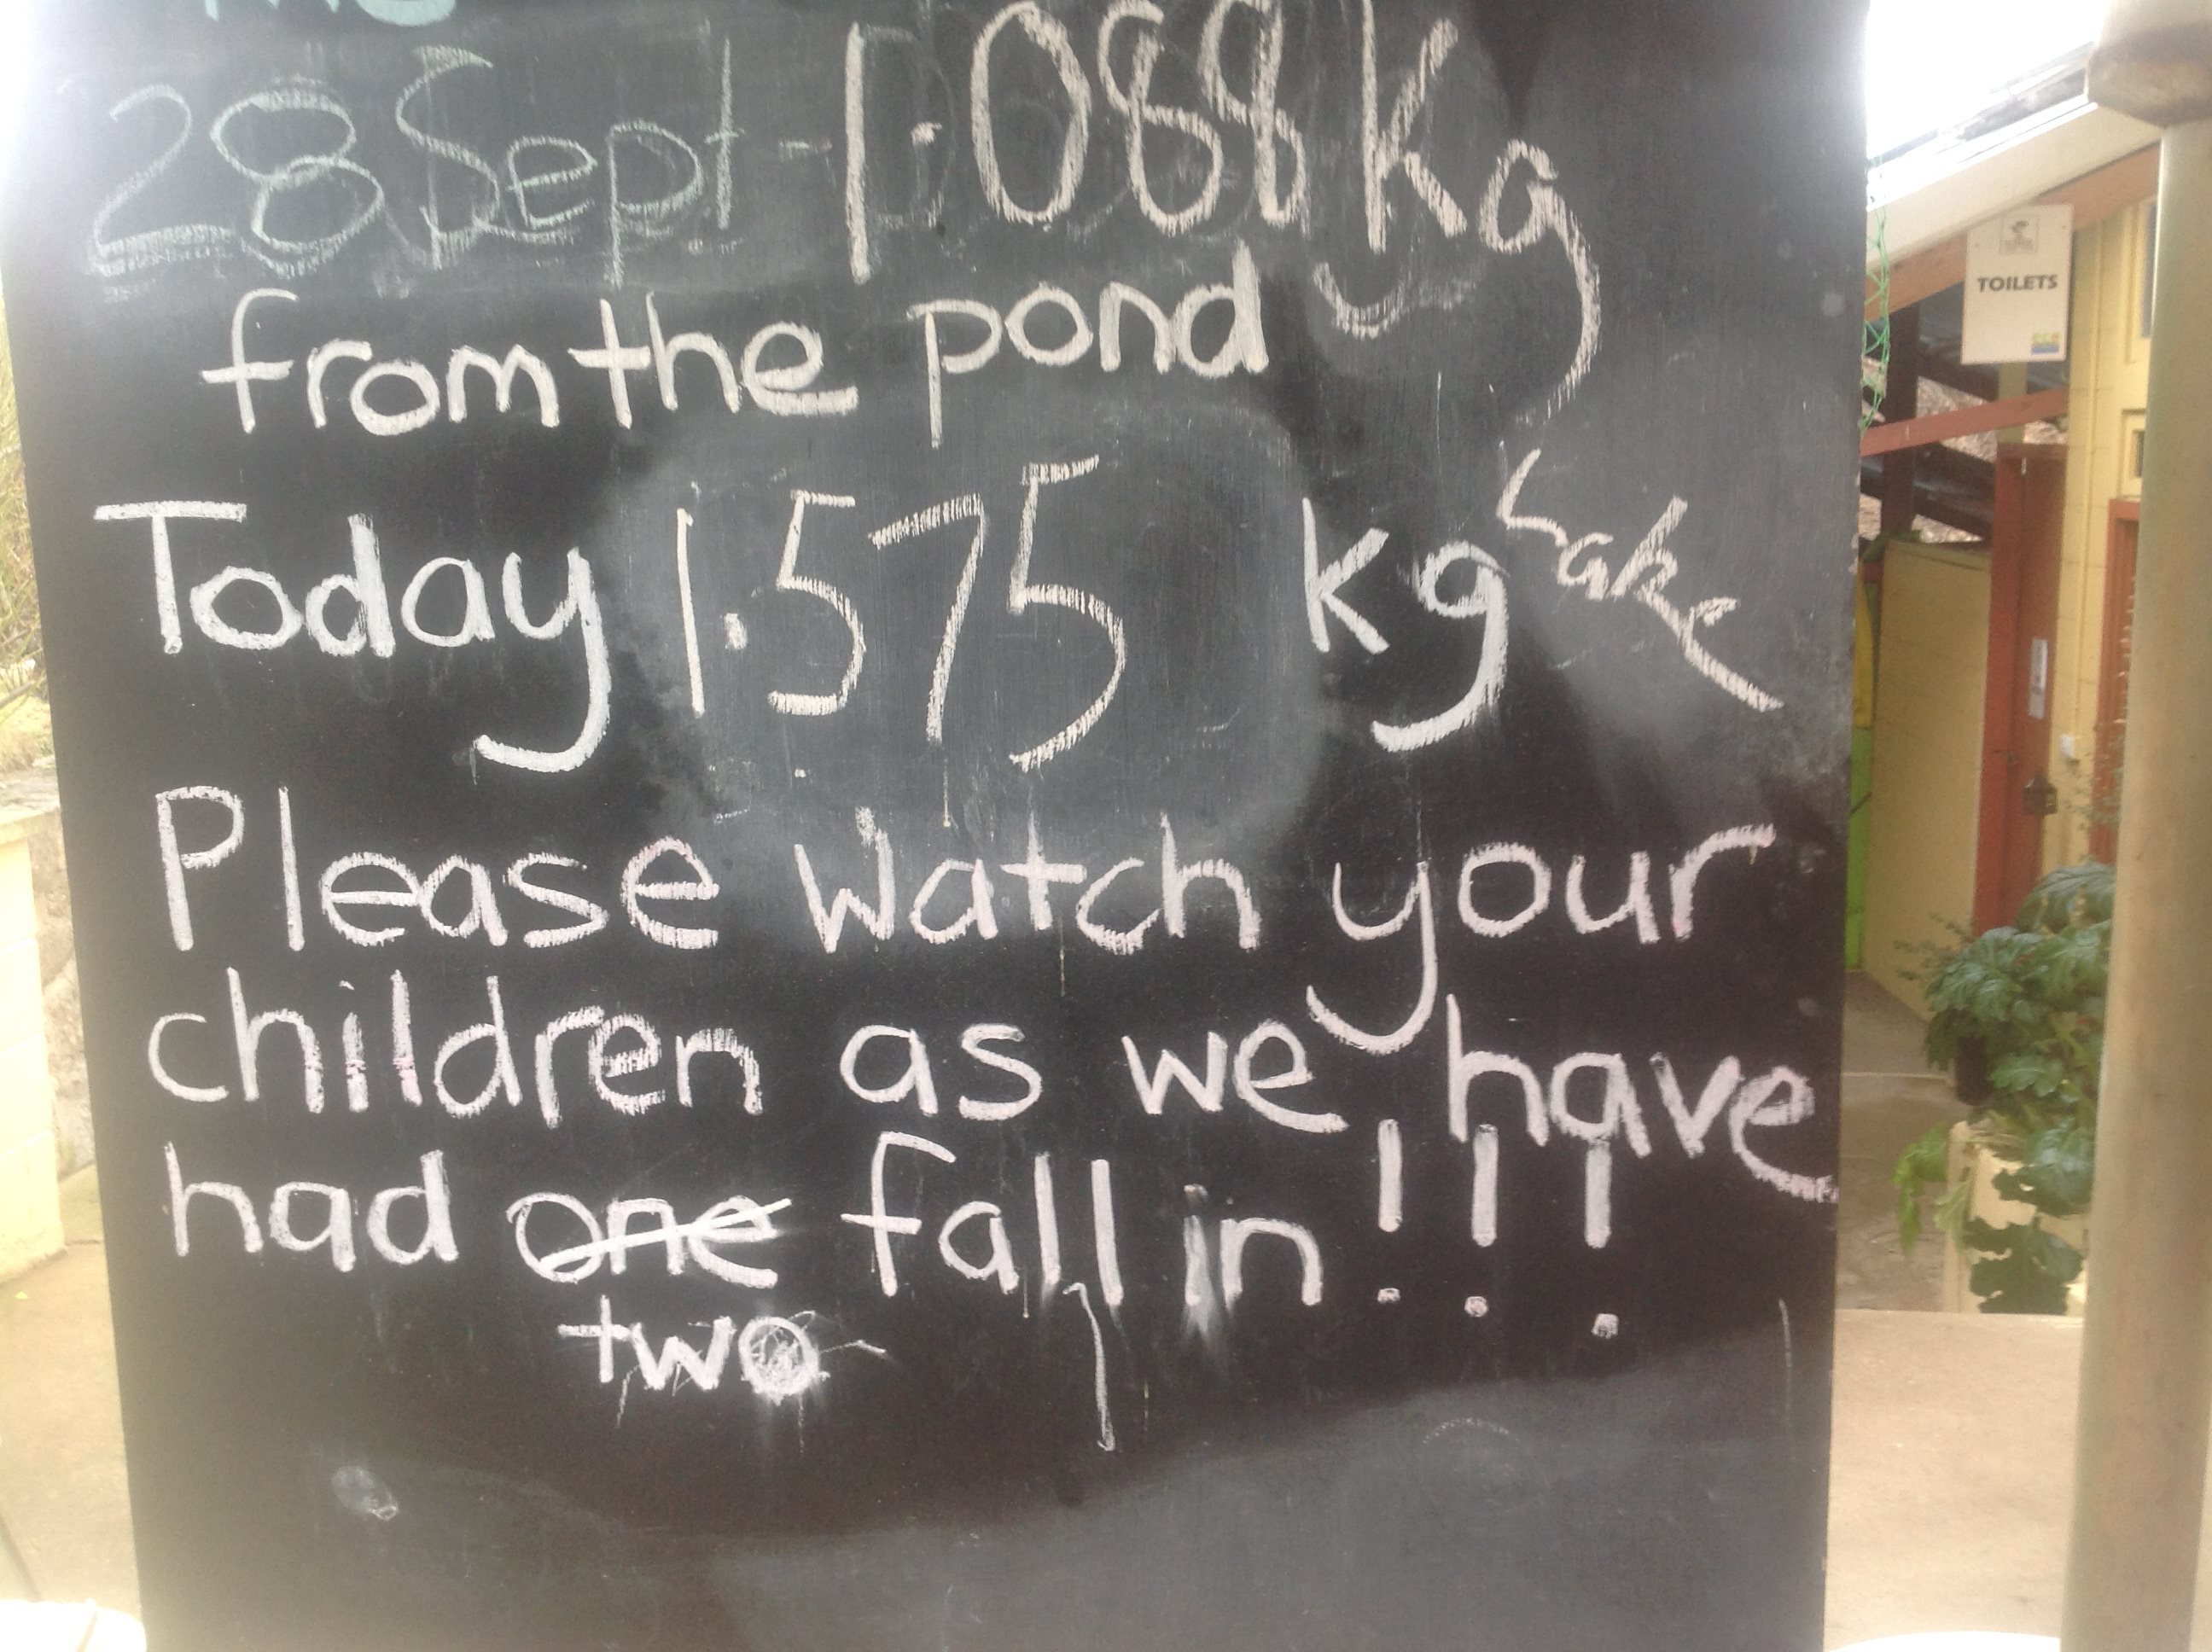 28 Sept - 1.088 kg
from the pond
Today 1.575 kg Lake
Please watch your
children as we have
had one fall in!!!
two
TOILETS